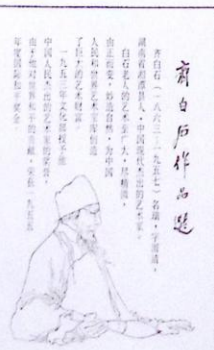 齐白石作品选
齐白石(一八六三—一九五七)名璜,字濒清,
湖南省湘潭县人,中国现代杰出的艺术家。
白石老人的艺术至广大,尽精微,
由正而变,妙造自然,为中国
人民和世界艺术宝库创造
了巨大的艺术财富。
一九五三年文化部授予他
中国人民杰出的艺术家的奖章,
由于他对世界和平的贡献,荣获一九五五
年度国际和平奖金。